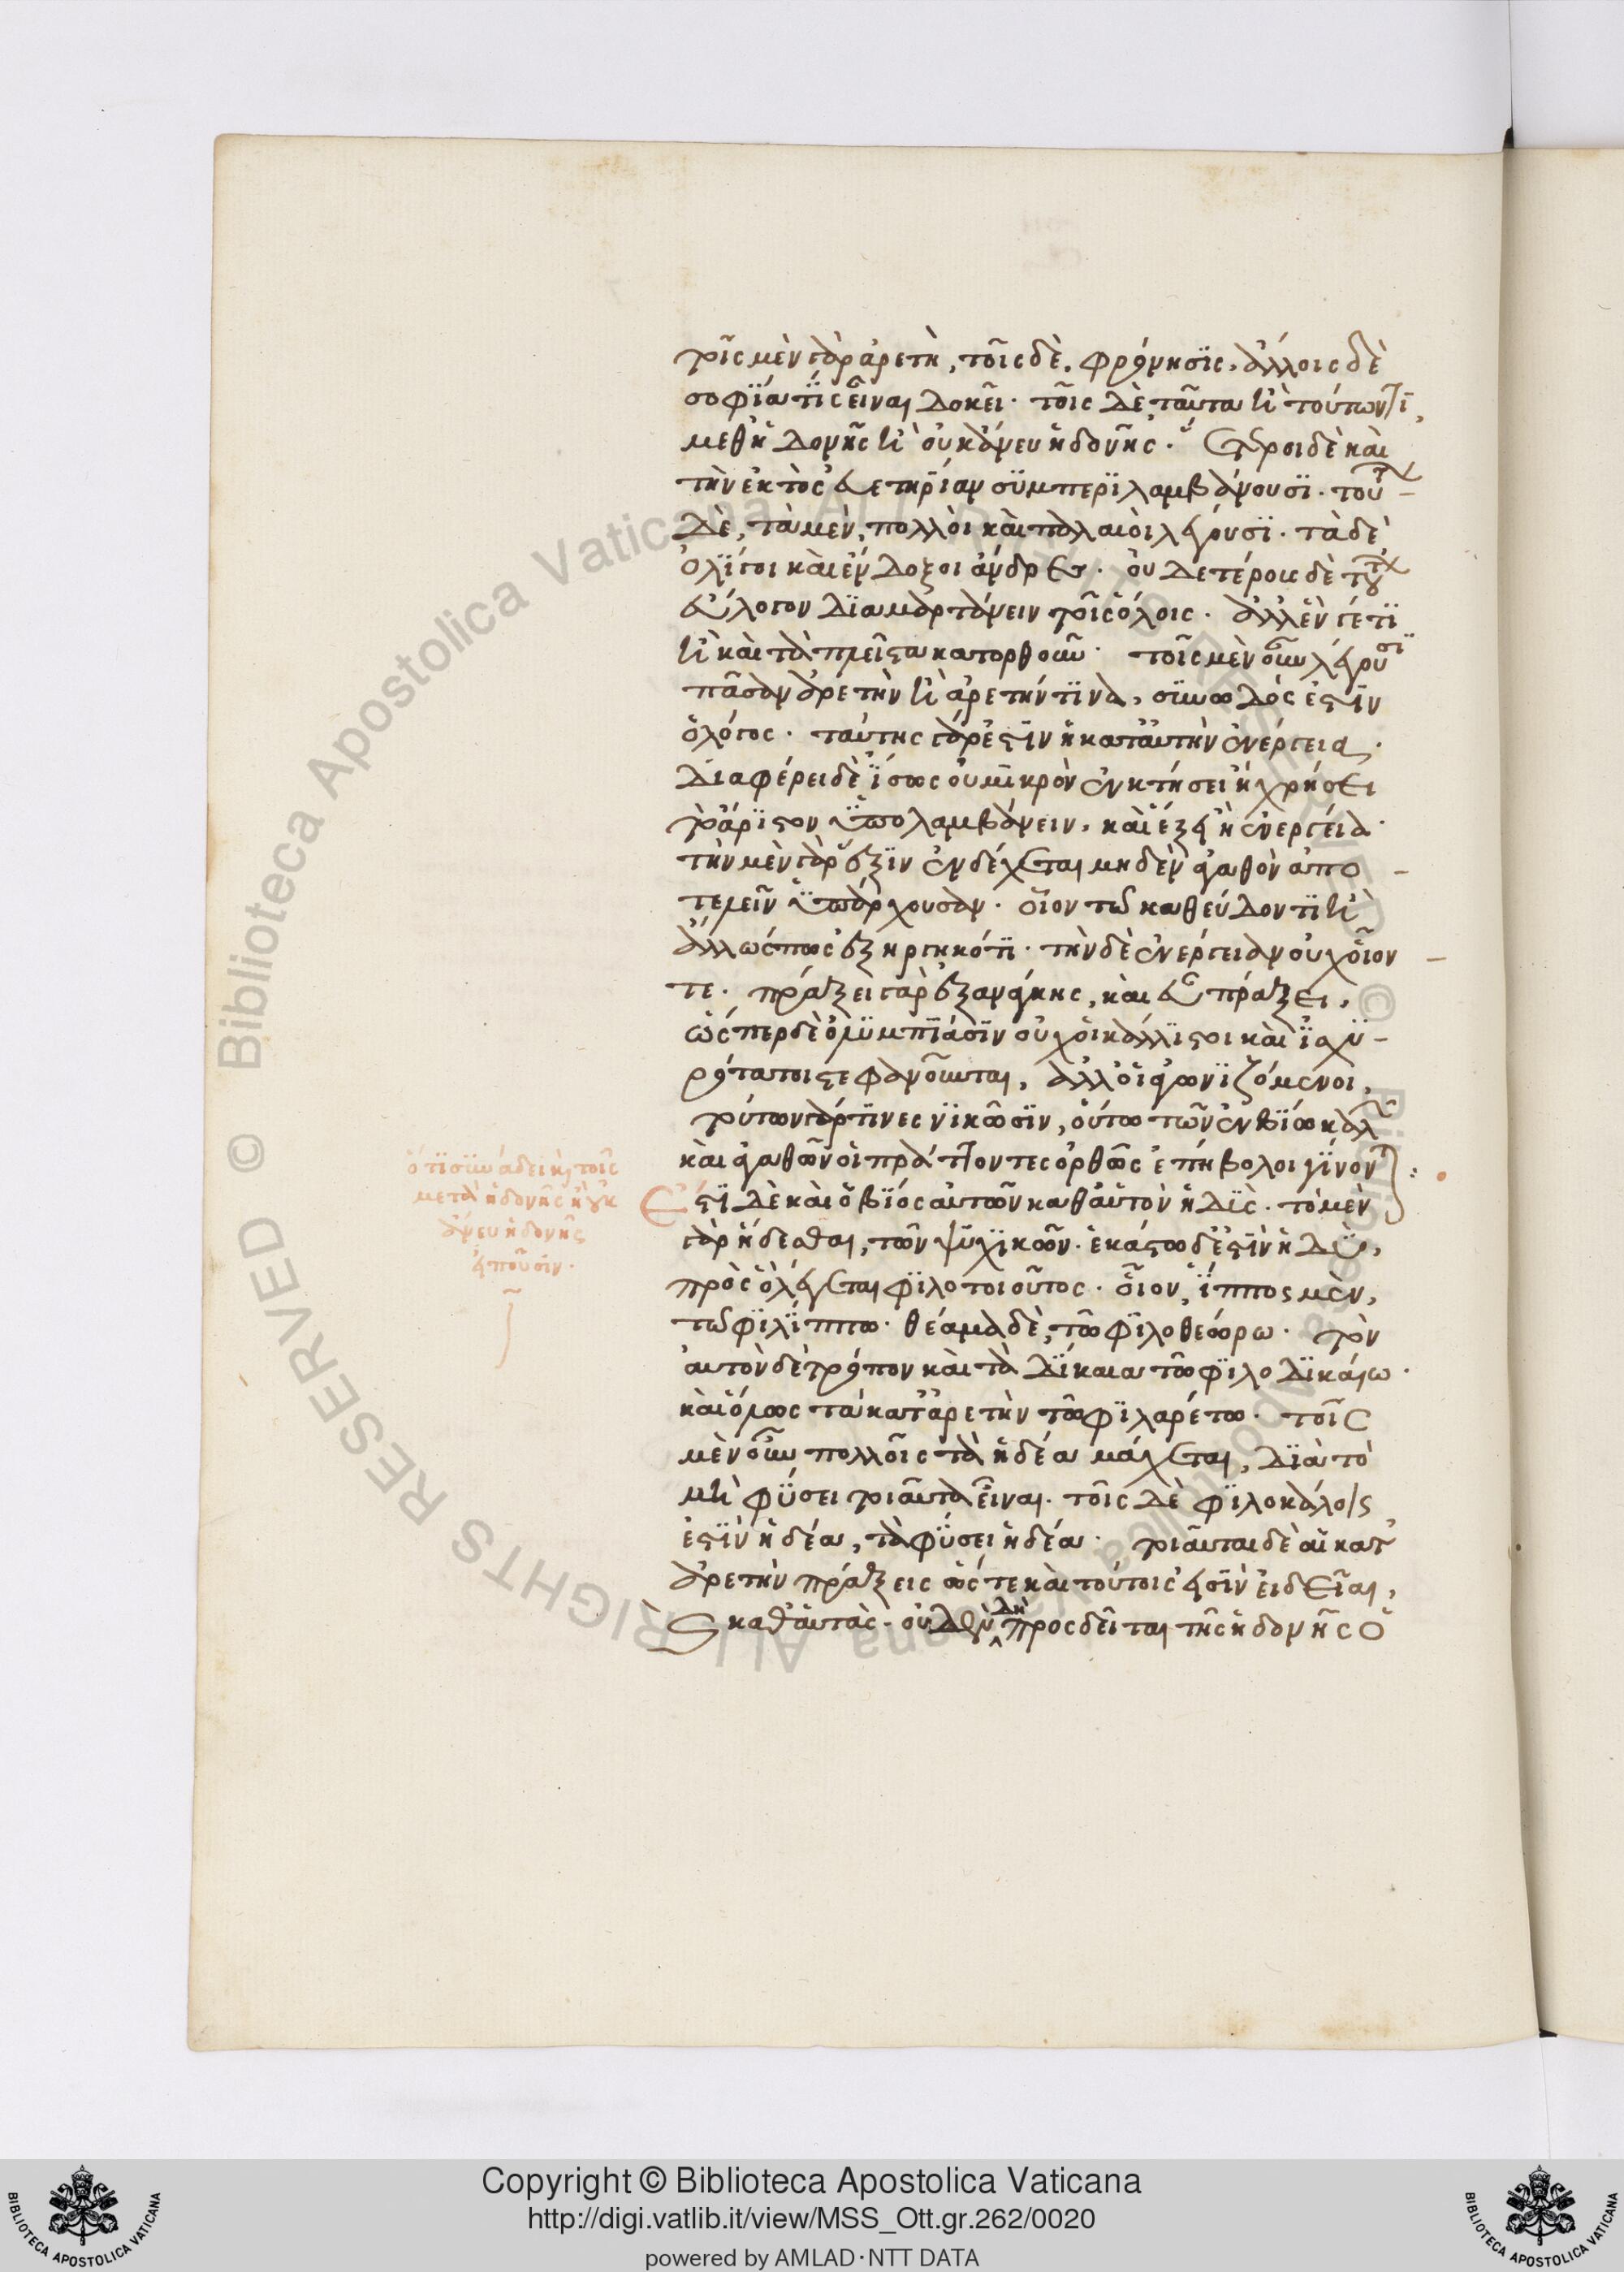 τοῖς μὲν γὰρ ἀρετὴ, τοῖς δὲ. φρόνησις, ἄλλοις δὲ
σοφία τίς εἶναι δοκεῖ· τοῖς δὲ ταῦτα ἢ τούτων τί,
μεθ' ἡδονῆς ἢ οὐκ ἄνευ ἡδονῆς· ἕτεροι δὲ καὶ
τὴν ἐκτὸς εὐετηρίαν συμπεριλαμβάνουσι. τούτων
δὲ, τὰ μὲν, πολλοὶ καὶ παλαιοὶ λέγουσι. τὰ δὲ
ὀλίγοι καὶ ἔνδοξοι ἄνδρες. οὐδετέρους δὲ τούτων
εὔλογον διαμαρτάνειν τοῖς ὅλοις. ἀλλ' ἕν γέ τι
ἢ καὶ τὰ πλεῖστα κατορθοῦν· τοῖς μὲν οὖν λέγουσι
πᾶσαν ἀρετὴν ἢ ἀρετήν τινα, συνωδός ἐστιν
ὁ λόγος. ταύτης γάρ ἐστιν ἡ κατ' αὐτὴν ἐνέργεια.
διαφέρει δὲ ἴσως οὐ μικρὸν ἐν κτήσει ἢ χρήσει
τὸ ἄριστον ὑπολαμβάνειν, καὶ ἕξει ἢ ἐνεργεία·
τὴν μὲν γὰρ ἕξιν ἐνδέχεται μηδὲν ἀγαθὸν ἀπο
τελεῖν ὑπάρχουσαν. οἷον τῶ καθεύδοντι ἢ
ἄλλως πως ἐξηργηκότι. τὴν δὲ ἐνέργειαν οὐχ οἷόν
τε. πράξει γὰρ ἐξ ἀνάγκης, καὶ εὖ πράξει,
ὥσπερ δὲ ὀλυμπίασιν οὐχ οἱ κάλλιστοι καὶ ἰσχυ-
ρότατοι στεφανοῦνται, ἀλλ' οἱ ἀγωνιζόμενοι,
τούτων γάρ τινες νικῶσιν, οὕτω τῶν ἐν βίω καλῶν
καὶ ἀγαθῶν οἱ πράττοντες ὀρθῶς ἐπήβολοι γίνονται:
ὅτι συνάδει καὶ τοῖς
μετὰ ἡδονῆς ἢ οὐκ
ἄνευ ἡδονῆς
εἰποῦσιν.
Ἔστι δὲ καὶ ὁ βίος αὐτῶν καθ' αὑτὸν ἡδὺς. τὸ μὲν
γὰρ ἥδεσθαι, τῶν ψυχικῶν. ἑκάστω δέ ἐστὶν ἡδὺ,
πρὸς ὃ λέγεται φιλοτοιοῦτος. οἷον, ἵππος μὲν,
τῶ φιλίππω. θέαμα δὲ, τῶ φιλοθεώρω. τὸν
αὐτὸν δὲ τρόπον καὶ τὰ δίκαια τῶ φιλοδικαίω.
καὶ ὅλως τὰ κατ' ἀρετὴν τῶ φιλαρέτω. τοῖς
μὲν οὖν πολλοῖς τὰ ἡδέα μάχεται, διὰ τὸ
μὴ φύσει τοιαῦτα εἶναι. τοῖς δὲ φιλοκάλοις
ἐστὶν ἡδέα, τὰ φύσει ἡδέα. τοιαῦται δὲ αἱ κατ'
ἀρετὴν πράξεις ὥστε καὶ τούτοις εἰσὶν ἡδεῖαι,
καὶ καθ' αὑτὰς. οὐδὲν δὴ προσδεῖται τῆς ἡδονῆς ὁ
Copyright © Biblioteca Apostolica Vaticana
http://digi.vatlib.it/view/MSS_Ott.gr.262/0020
powered by AMLAD·NTT DATA